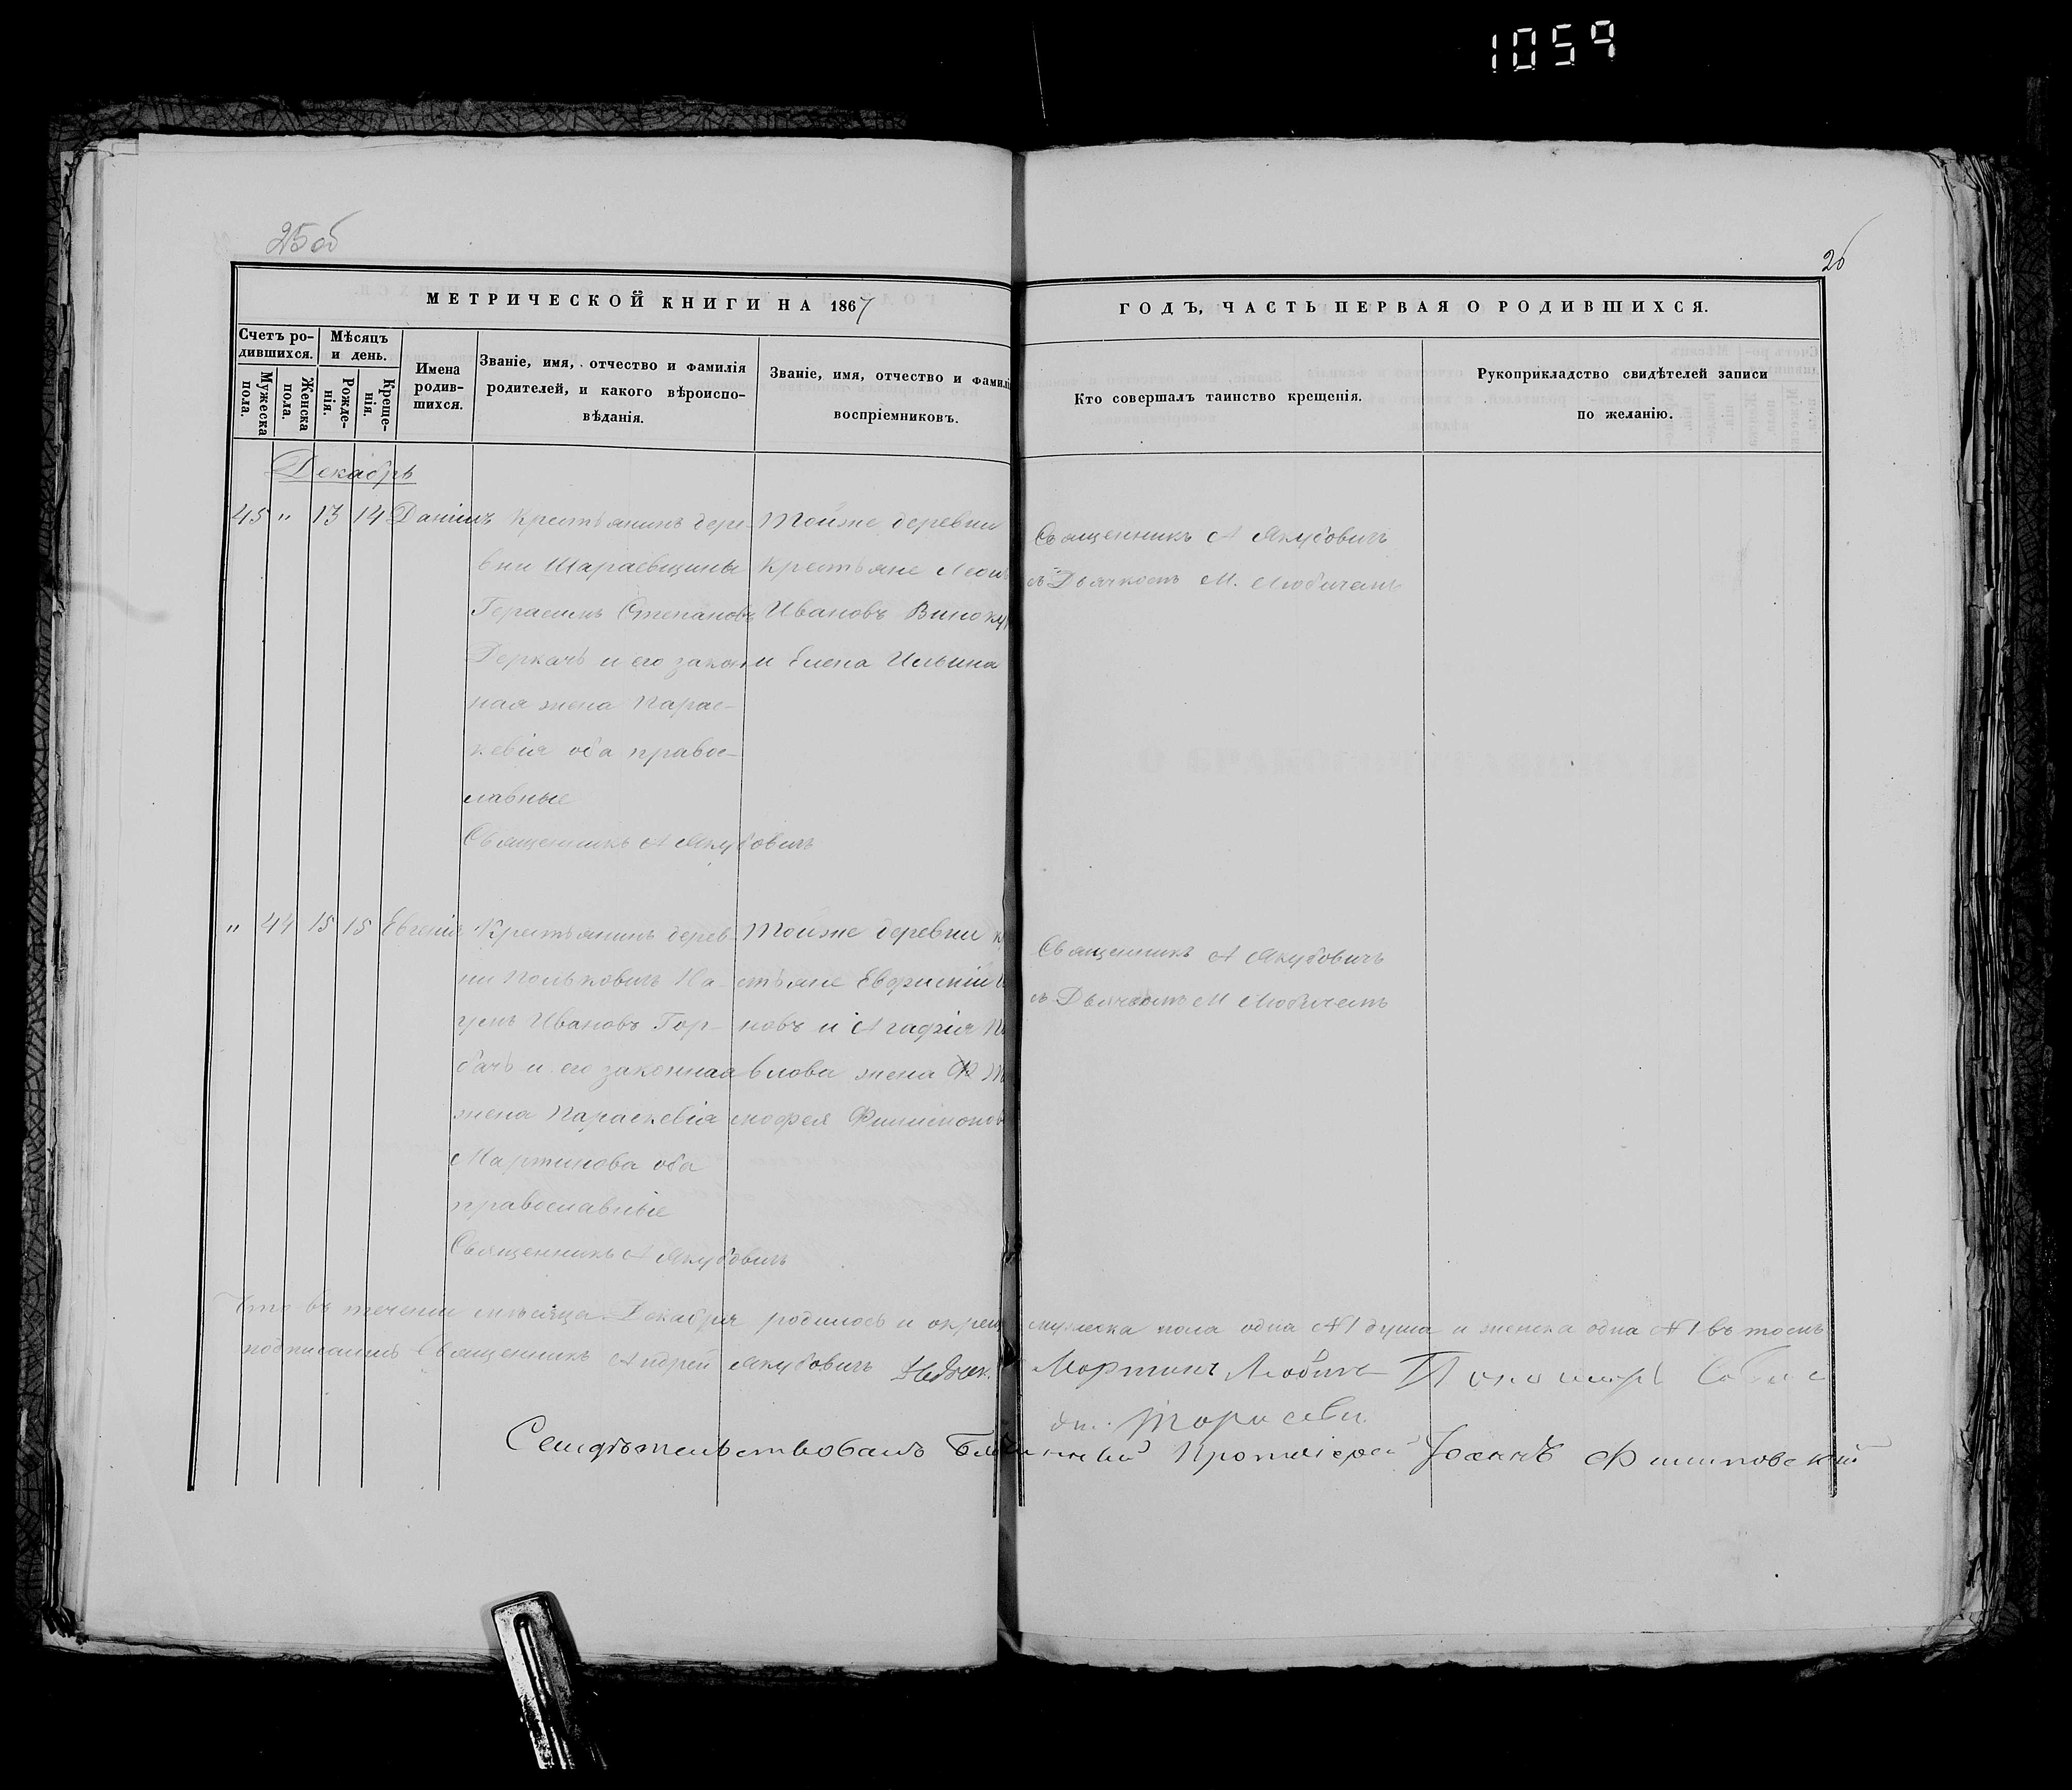 1059
25об
26
МЕТРИЧЕСКОЙ КНИГИ НА 1867
ГОДЪ, ЧАСТЬ ПЕРВАЯ О РОДИВШИХСЯ.
Счетъ ро-
дившихся.
Мужеска
пола.
Женска
пола.
Мѣсяцъ
и день.
Рожде-
нія.
Креще-
нія.
Имена
родив-
шихся.
Званіе, имя, отчество и фамилія
родителей, и какого вѣроиспо-
вѣданія.
Званіе, имя, отчество и фамилі
воспріемниковъ.
Кто совершалъ таинство крещенія.
Рукоприкладство свидѣтелей записи
по желанію.
Декабрь
45 " 13 14 Даніилъ
Крестьянинъ дере-
вни Шараевщины
Герасимъ Степановъ
Деркачъ и его закон-
ная жена Парас-
кевія оба правос-
лавные
Священникъ А Якубовичъ
Тойже деревни
крестьяне Леон
Ивановъ Виноку
и Елена Ильина
Священникъ А Якубовичъ
съ Дьячкомъ М.
" 44 15 15 Евгенія
Крестьянинъ дерев-
ни На-
умъ Ивановъ Гор-
бачъ и его законная
жена Параскевія
Мартинова оба
православніе
Священникъ А Якубовичъ
Тойже деревни к
стьяне
новъ и Агафія Па
влова жена Ти
мофея Филимонов
Священникъ А Якубовичъ
съ Дьячкомъ М
Что въ теченіи мѣсяца Декабря родилось и окрещ мужеска пола одна №1 душа и женска одна №1 въ томъ
подписаемъ Священникъ Андрей Якубовичъ
Свидѣтельствовалъ Протоіерей Іоаннъ Филиповскій